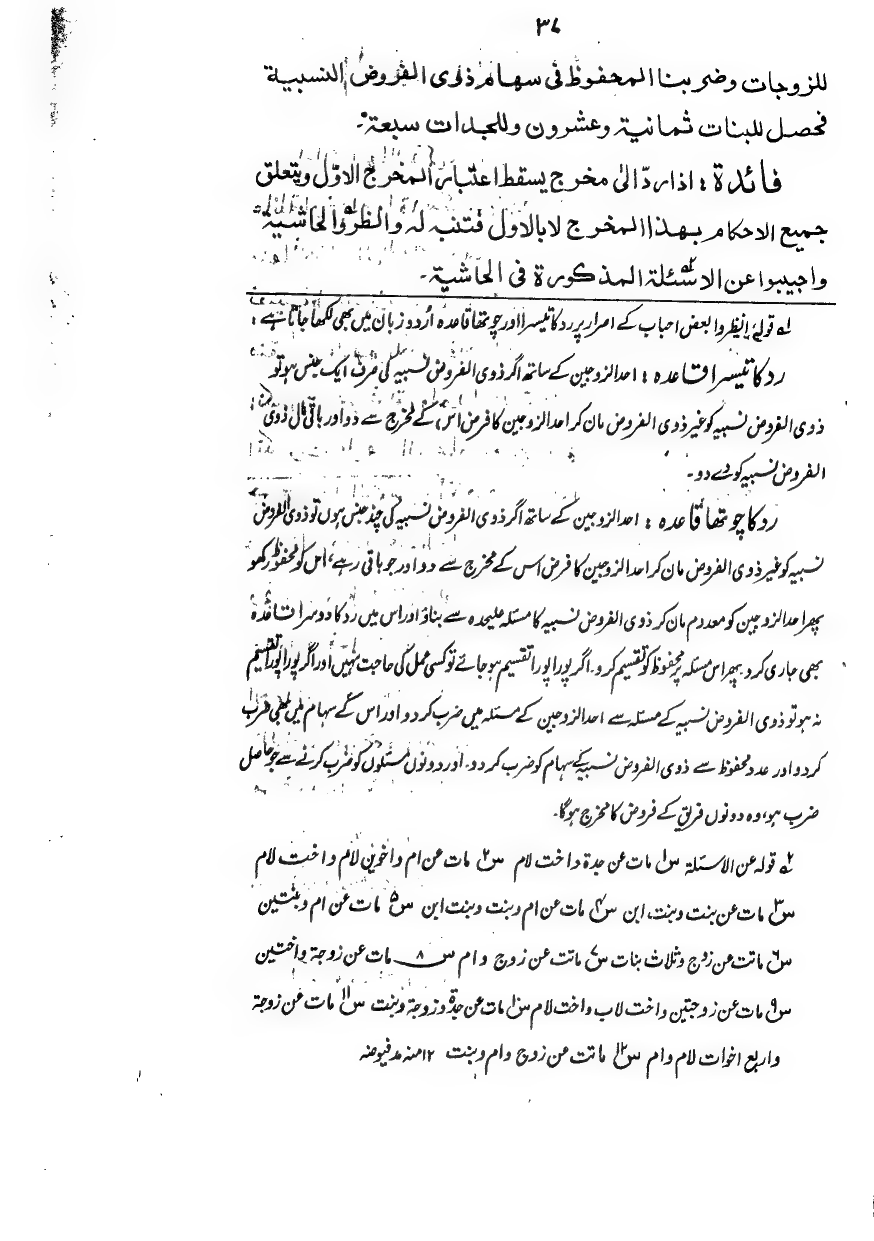 ۳۸
للزوجات وضربنا المحفوظ فی سهام ذوی الفروض النسبیة
فحصل للبنات ثمانیة وعشرون وللجدات سبعة۔
فائدة : اذا ردّ الیٰ مخرج یسقط اعتبار المخرج الاوّل ویتعلق
جمیع الاحکام بهذا المخرج لا بالاول فتنبه له وانظروا الحاشیة
واجیبوا عن الاسئلة المذکورة فی الحاشیة۔
لے قولہٗ انظروا بعض احباب کے اصرار پر رد کا تیسرا اور چوتھا قاعدہ اُردو زبان میں بھی لکھا جاتا ہے :
رد کا تیسرا قاعدہ : احد الزوجین کے ساتھ اگر ذوی الفروض نسبیہ کی صرف ایک جنس ہو تو
ذوی الفروض نسبیہ کو غیر ذوی الفروض مان کر احد الزوجین کا فرض اس کے مخرج سے دو اور باقی مال ذوی
الفروض نسبیہ کو دے دو۔
رد کا چوتھا قاعدہ : احد الزوجین کے ساتھ اگر ذوی الفروض نسبیہ کی چند جنس ہوں تو ذوی الفروض
نسبیہ کو غیر ذوی الفروض مان کر احد الزوجین کا فرض اس کے مخرج سے دو اور جو باقی رہے، اس کو محفوظ رکھو
پھر احد الزوجین کو معدوم مان کر ذوی الفروض نسبیہ کا مسئلہ علیحدہ سے بناؤ اور اس میں رد کا دوسرا قاعدہ
بھی جاری کرد۔ پھر اس مسئلہ پر محفوظ کو تقسیم کرو۔ اگر پورا پورا تقسیم ہو جائے تو کسی عمل کی حاجت نہیں اور اگر پورا پورا تقسیم
نہ ہو تو ذوی الفروض نسبیہ کے مسئلہ سے احد الزوجین کے مسئلہ میں ضرب کردو اور اس کے سہام میں بھی ضرب
کردو اور عدد محفوظ سے ذوی الفروض نسبیہ کے سہام کو ضرب کردو۔ اور دونوں مسئلوں کو ضرب کرنے سے جو حاصل
ضرب ہو، وہ دونوں فریق کے فروض کا مخرج ہوگا۔
۲ے قولہ عن الاسئلة س۱ مات عن جدة واخت لام س۲ مات عن ام واخوین لام واخت لام
س۳ مات عن بنت وبنت ابن س۴ مات عن ام وبنت وبنت ابن س۵ مات عن ام وبنتین
س۶ ماتت عن زوج وثلاث بنات س۷ ماتت عن زوج و ام س۸ مات عن زوجة واختین
س۹ مات عن زوجتین واخت لاب واخت لام س۱۰ مات عن جدة وزوجة وبنت س۱۱ مات عن زوجة
واربع اخوات لام وام س۱۲ ماتت عن زوج وام وبنت ۱۲ منہ مد فیوضہ